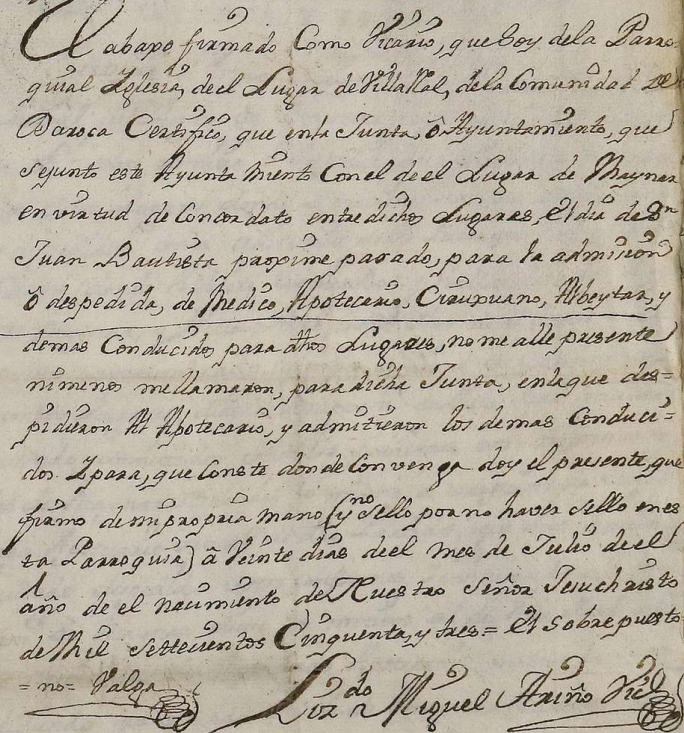 El abaxo firmado Como Vicario, que Soy de la Parro=
quial Iglesia, de el Lugar de Villa Rl, de la Comunidad de
Daroca Certifico, que en la Junta, ô Ayuntamiento, que
se junto este Ayuntamiento Con el de el Lugar de Maynar
en virtud de Concordato entre dichos Lugares, el dia de Sn
Juan Bautista proxime pasado, para la admision
ô despedida, de Medico, Apotecario, Cirujuano, Albeytar, y
demas Conducidos para dhos Lugares, no me alle presente
ni menos me llamaron, para dicha Junta, en la que des=
pidieron Al Apotecario, y admitieron los demas Conduci=
dos. I para, que Conste donde Convenga doy el presente, que
firmo de mi propria mano (y no Sello por no haver Sello en es
ta Parroquia) â Veinte dias de el mes de Julio de el
año de el nacimiento de Nuestro Señor Jesuchristo
de Mil Settecientos Cinquenta, y tres = El Sobrepuesto
= no = Valga
Lizdo Miguel Ariño Vic